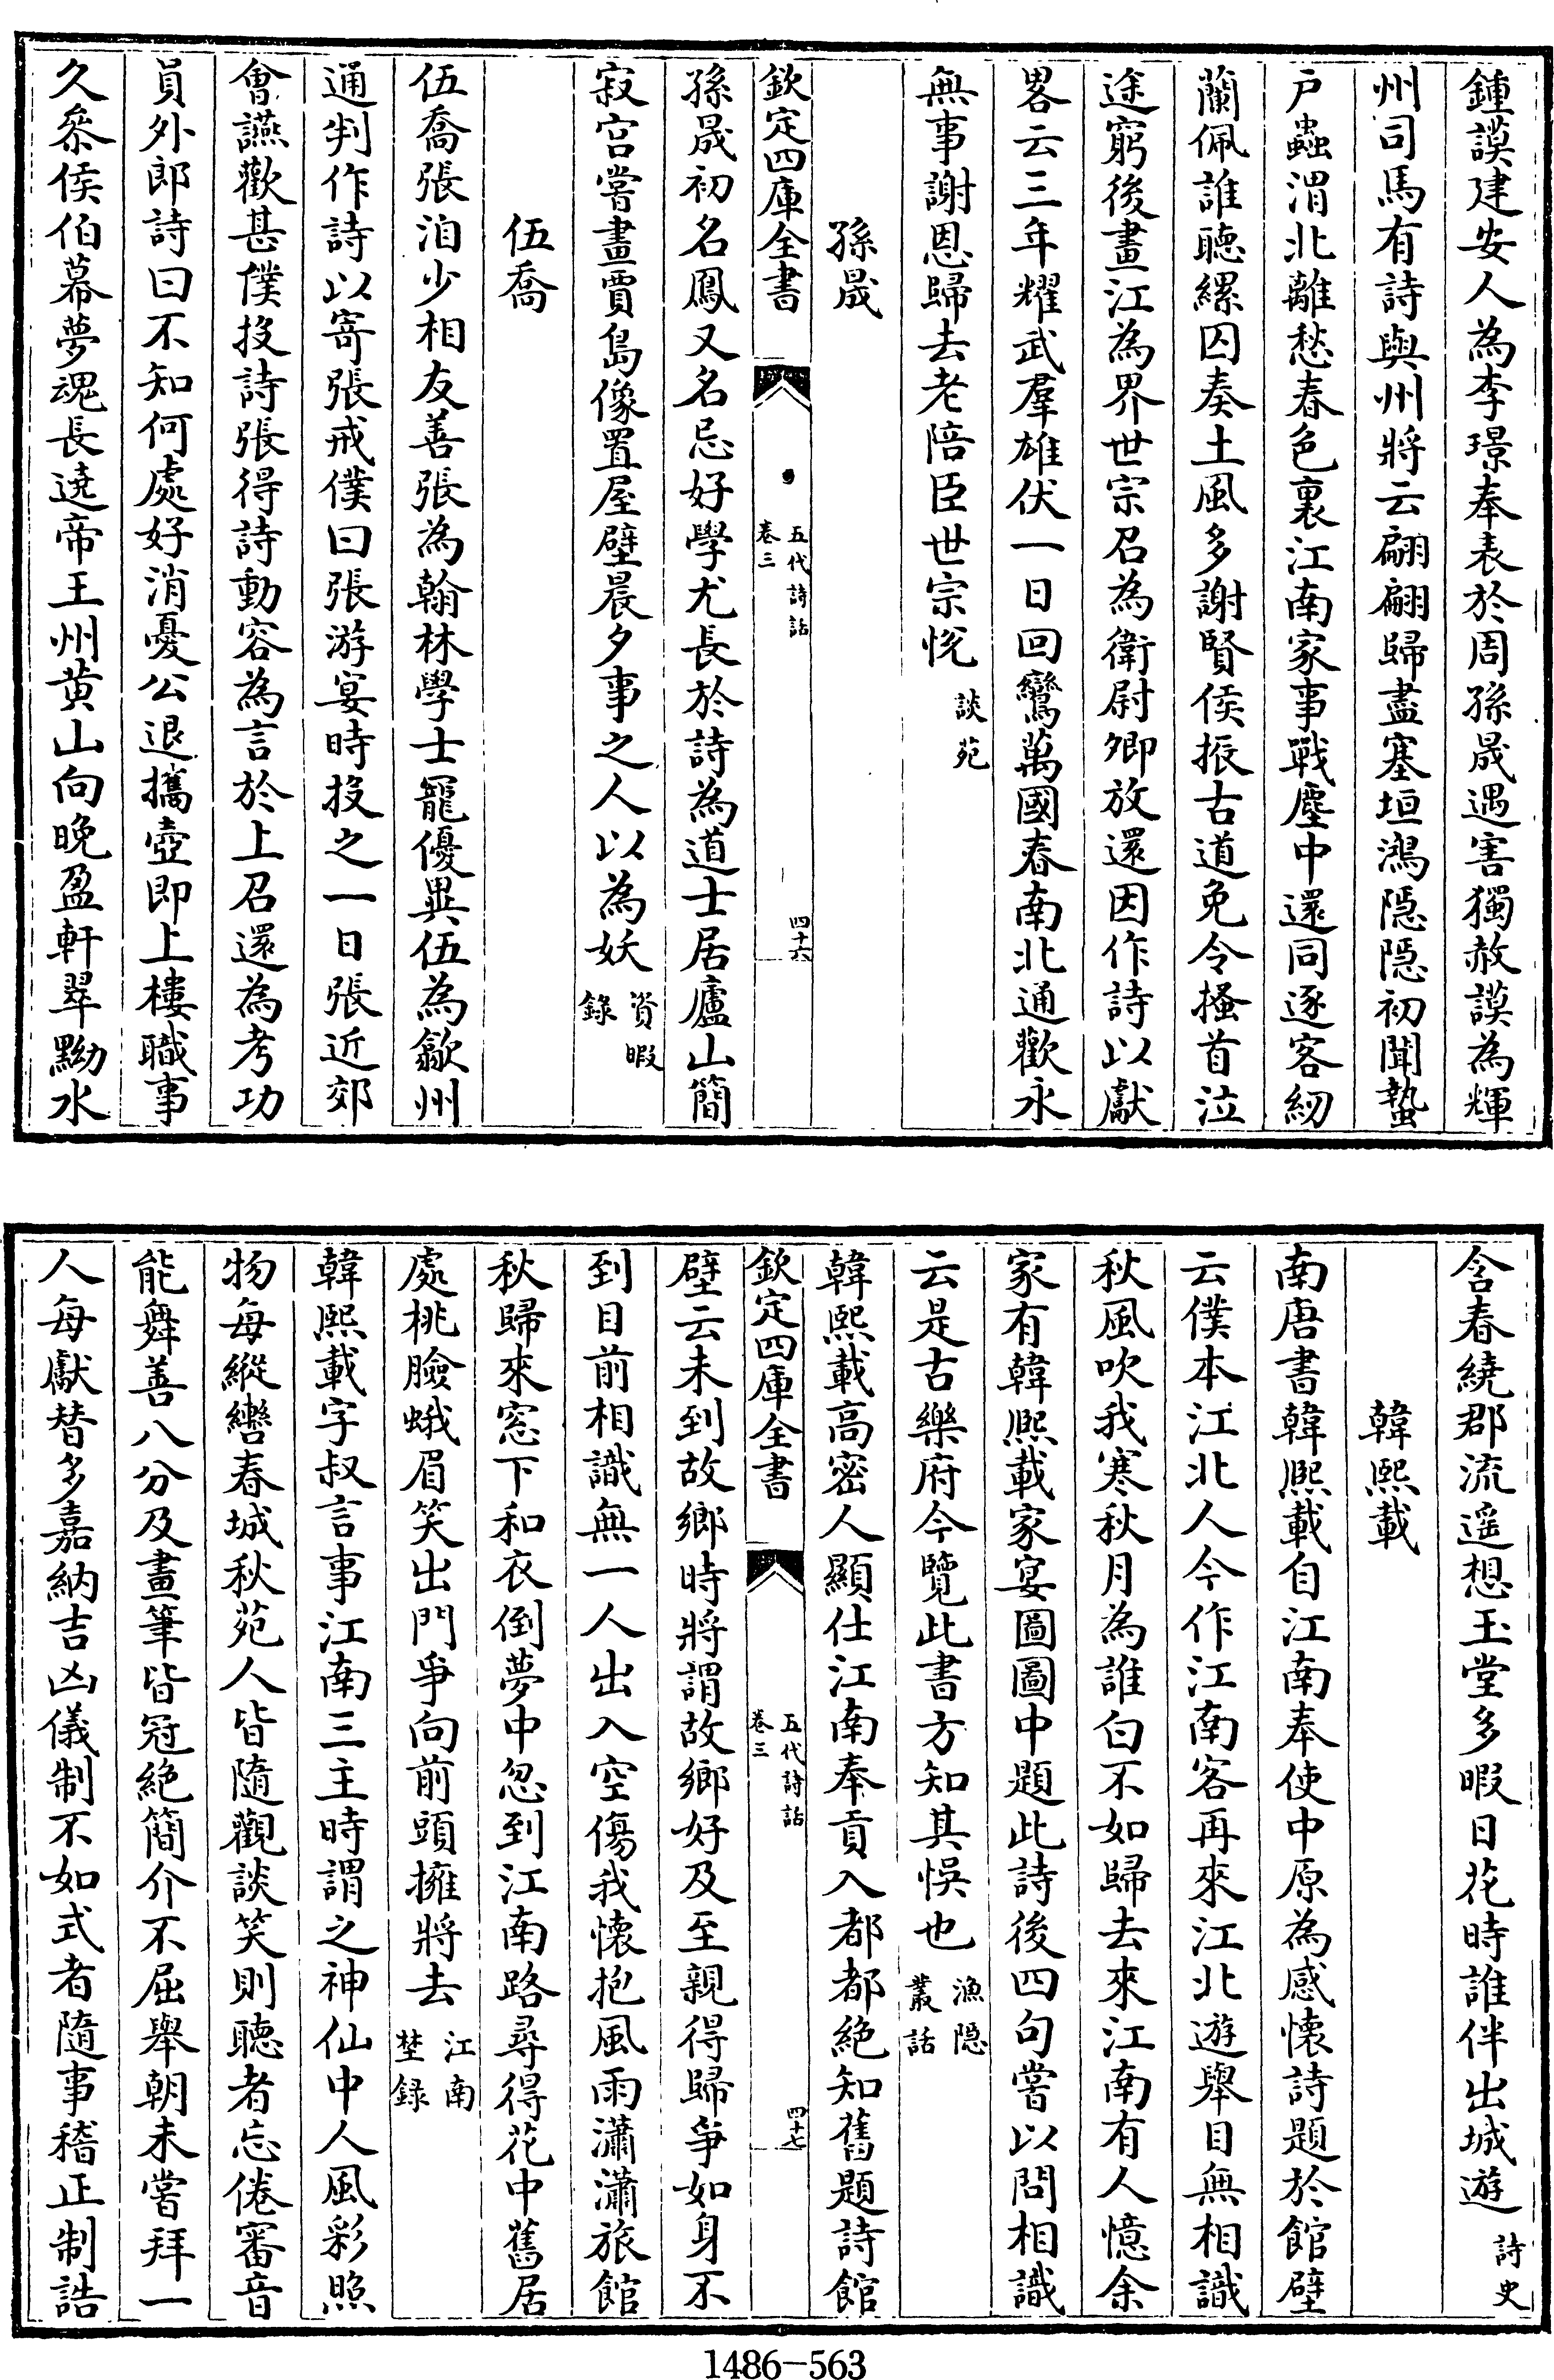 鍾謨建安人為李璟奉表於周孫晟遇害獨赦謨為輝
州司馬有詩與州將云翩翩歸盡塞垣鴻隠隠初聞蟄
户蟲渭北離愁春色裏江南家事戰塵中還同逐客紉
蘭佩誰聴縲囚奏土風多謝賢侯振古道免令搔首泣
途窮後畫江為界世宗召為衛尉卿放還因作詩以獻
畧云三年耀武羣雄伏一日回鸞萬國春南北通歡永
無事謝恩歸去老陪臣世宗悦 談苑
孫晟
欽定四庫全書
五代詩話
卷三
四十六
孫晟初名鳳又名忌好學尤長於詩為道士居廬山簡
寂宫嘗畫賈島像置屋壁晨夕事之人以為妖 資暇錄
伍喬
伍喬張洎少相友善張為翰林學士寵優異伍為歙州
通判作詩以寄張戒僕曰張游宴時投之一日張近郊
會讌歡甚僕投詩張得詩動容為言於上召還為考功
員外郎詩曰不知何處好消憂公退攜壺即上樓職事
久叅侯伯幕夢魂長遶帝王州黄山向晚盈軒翠黝水
含春繞郡流遥想玉堂多暇日花時誰伴出城遊 詩史
韓熙載
南唐書韓熙載自江南奉使中原為感懷詩題於館壁
云僕本江北人今作江南客再來江北遊舉目無相識
秋風吹我寒秋月為誰白不如歸去來江南有人憶余
家有韓熙載家宴圖圖中題此詩後四句嘗以問相識
云是古樂府今覽此書方知其悞也 漁隠叢話
韓熙載高密人顯仕江南奉貢入都都絶知舊題詩館
欽定四庫全書
五代詩話
卷三
四十七
壁云未到故鄉時將謂故鄉好及至親得歸爭如身不
到目前相識無一人出入空傷我懷抱風雨瀟瀟旅館
秋歸來窓下和衣倒夢中忽到江南路尋得花中舊居
處桃臉蛾眉笑出門爭向前頭擁將去 江南埜録
韓熙載字叔言事江南三主時謂之神仙中人風彩照
物每縱轡春城秋苑人皆隨觀談笑則聴者忘倦審音
能舞善八分及畫筆皆冠絶簡介不屈舉朝未嘗拜一
人每獻替多嘉納吉凶儀制不如式者隨事稽正制誥
1486-563